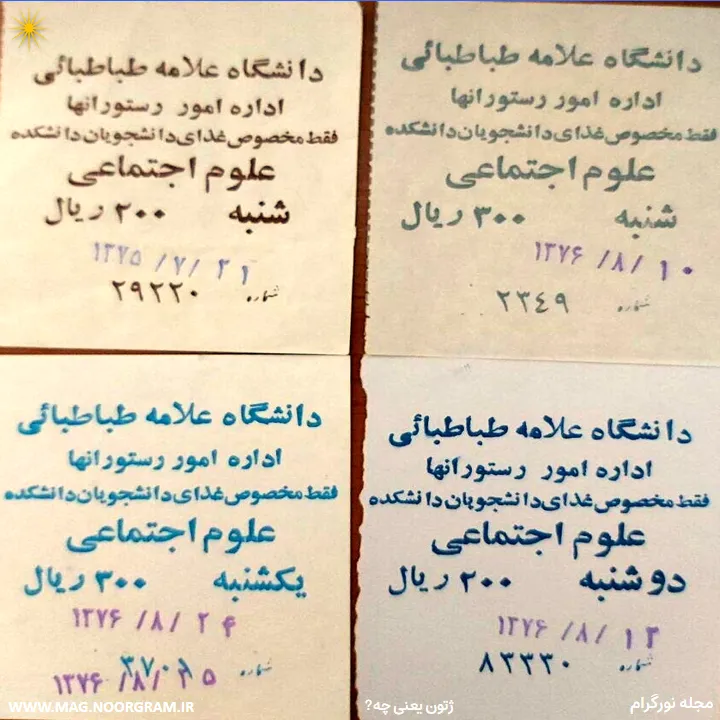 دانشگاه علامه طباطبائی
اداره امور رستورانها
فقط مخصوص غذای دانشجویان دانشکده
علوم اجتماعی
شنبه ۳۰۰ ریال
۱۳۷۶/۸/۱۰
شماره ۲۳۴۹
دانشگاه علامه طباطبائی
اداره امور رستورانها
فقط مخصوص غذای دانشجویان دانشکده
علوم اجتماعی
شنبه ۲۰۰ ریال
۱۳۷۵/۷/۲۱
شماره ۲۹۲۲۰
دانشگاه علامه طباطبائی
اداره امور رستورانها
فقط مخصوص غذای دانشجویان دانشکده
علوم اجتماعی
دوشنبه ۲۰۰ ریال
۱۳۷۶/۸/۱۲
شماره ۸۳۳۳۰
دانشگاه علامه طباطبائی
اداره امور رستورانها
فقط مخصوص غذای دانشجویان دانشکده
علوم اجتماعی
یکشنبه ۳۰۰ ریال
۱۳۷۶/۸/۲۴
شماره
۱۳۷۶/۸/۲۵
مجله نورگرام
ژتون یعنی چه؟
WWW.MAG.NOORGRAM.IR